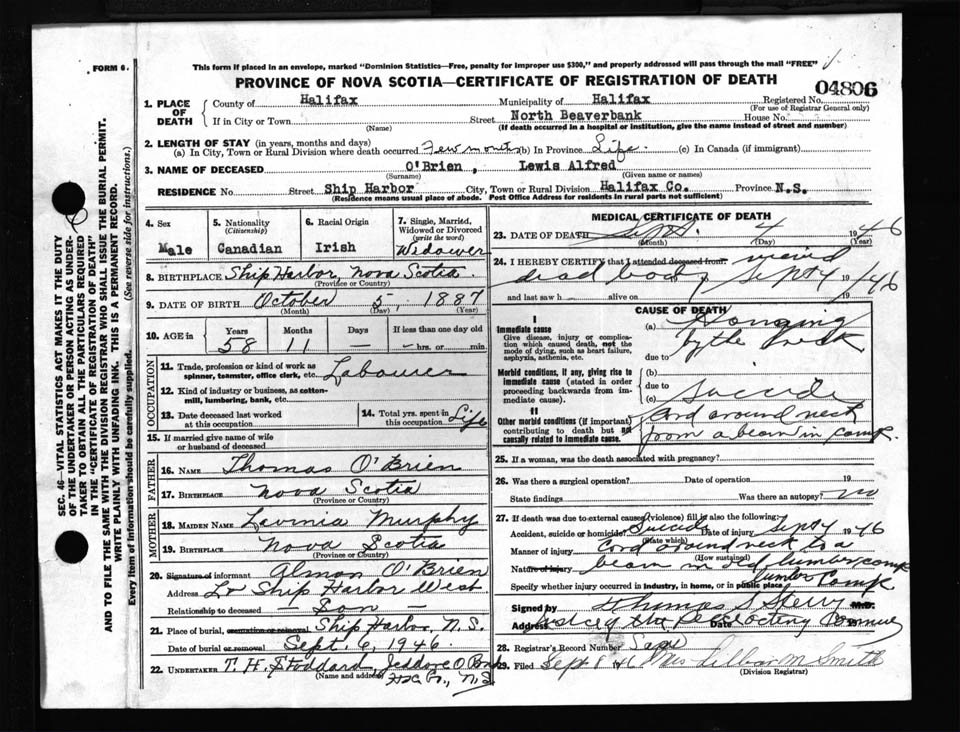 FORM 6.
This form if placed in an envelope, marked "Dominion Statistics—Free, penalty for improper use $300," and properly addressed will pass through the mail "FREE"
PROVINCE OF NOVA SCOTIA—CERTIFICATE OF REGISTRATION OF DEATH
04806
1. PLACE OF DEATH
County of Halifax Municipality of Halifax Registered No.
(For use of Registrar General only)
If in City or Town Street North Beaverbank House No.
(Name) (If death occurred in a hospital or institution, give the name instead of street and number)
2. LENGTH OF STAY (in years, months and days)
(a) In City, Town or Rural Division where death occurred Few months (b) In Province Life. (c) In Canada (if immigrant)
3. NAME OF DECEASED O'Brien, Lewis Alfred
(Surname) (Given name or names)
RESIDENCE No. Street Ship Harbor City, Town or Rural Division Halifax Co. Province N.S.
(Residence means usual place of abode. Post Office Address for residents in rural parts not sufficient)
4. Sex Male
5. Nationality (Citizenship) Canadian
6. Racial Origin Irish
7. Single, Married, Widowed or Divorced (write the word) Widower
8. BIRTHPLACE Ship Harbor, Nova Scotia
(Province or Country)
9. DATE OF BIRTH October 5, 1887
(Month) (Day) (Year)
10. AGE in Years Months Days If less than one day old
58 11 — — hrs. or min.
OCCUPATION
11. Trade, profession or kind of work as spinner, teamster, office clerk, etc. Labourer
12. Kind of industry or business, as cotton-mill, lumbering, bank, etc.
13. Date deceased last worked at this occupation
14. Total yrs. spent in this occupation Life
15. If married give name of wife or husband of deceased
FATHER
16. NAME Thomas O'Brien
17. BIRTHPLACE Nova Scotia
(Province or Country)
MOTHER
18. MAIDEN NAME Lavinia Murphy
19. BIRTHPLACE Nova Scotia
(Province or Country)
20. Signature of informant Almon O'Brien
Address Lr Ship Harbor West
Relationship to deceased — Son —
21. Place of burial, cremation or removal Ship Harbor, N.S.
Date of burial or removal Sept. 6, 1946.
22. UNDERTAKER T. H. Stoddard, Jeddore O
(Name and address) Hfx Co., N.S
MEDICAL CERTIFICATE OF DEATH
23. DATE OF DEATH Sept. 4 1946
(Month) (Day) (Year)
24. I HEREBY CERTIFY that I attended deceased from: viewed
dead body Sept 4 1946
and last saw h alive on 19
CAUSE OF DEATH
I
Immediate cause
Give disease, injury or complication which caused death, not the mode of dying, such as heart failure, asphyxia, asthenia, etc.
(a) Hanging
by the neck
due to
Morbid conditions, if any, giving rise to immediate cause (stated in order proceeding backwards from immediate cause).
(b)
due to
(c) Suicide
II
Other morbid conditions (if important) contributing to death but not causally related to immediate cause.
Cord around neck
from a beam in camp.
25. If a woman, was the death associated with pregnancy?
26. Was there a surgical operation? Date of operation 19
State findings Was there an autopsy? no
27. If death was due to external causes (violence) fill in also the following:
Accident, suicide or homicide? Suicide Date of injury Sept 4 1946
(State which)
Manner of injury Cord around neck to a
(How sustained)
Nature of injury beam in old lumber camp
Specify whether injury occurred in industry, in home, or in public place lumber Camp
Signed by Thomas M.D.
Address Date
28. Registrar's Record Number
29. Filed Sept 8 1946 Mrs M Smith
(Division Registrar)
SEC. 46—VITAL STATISTICS ACT MAKES IT THE DUTY
OF THE UNDERTAKER OR PERSON ACTING AS UNDERTAKER TO OBTAIN ALL THE PARTICULARS REQUIRED
IN THE "CERTIFICATE OF REGISTRATION OF DEATH"
AND TO FILE THE SAME WITH THE DIVISION REGISTRAR WHO SHALL ISSUE THE BURIAL PERMIT.
WRITE PLAINLY WITH UNFADING INK. THIS IS A PERMANENT RECORD.
Every item of information should be carefully supplied. (See reverse side for instructions.)